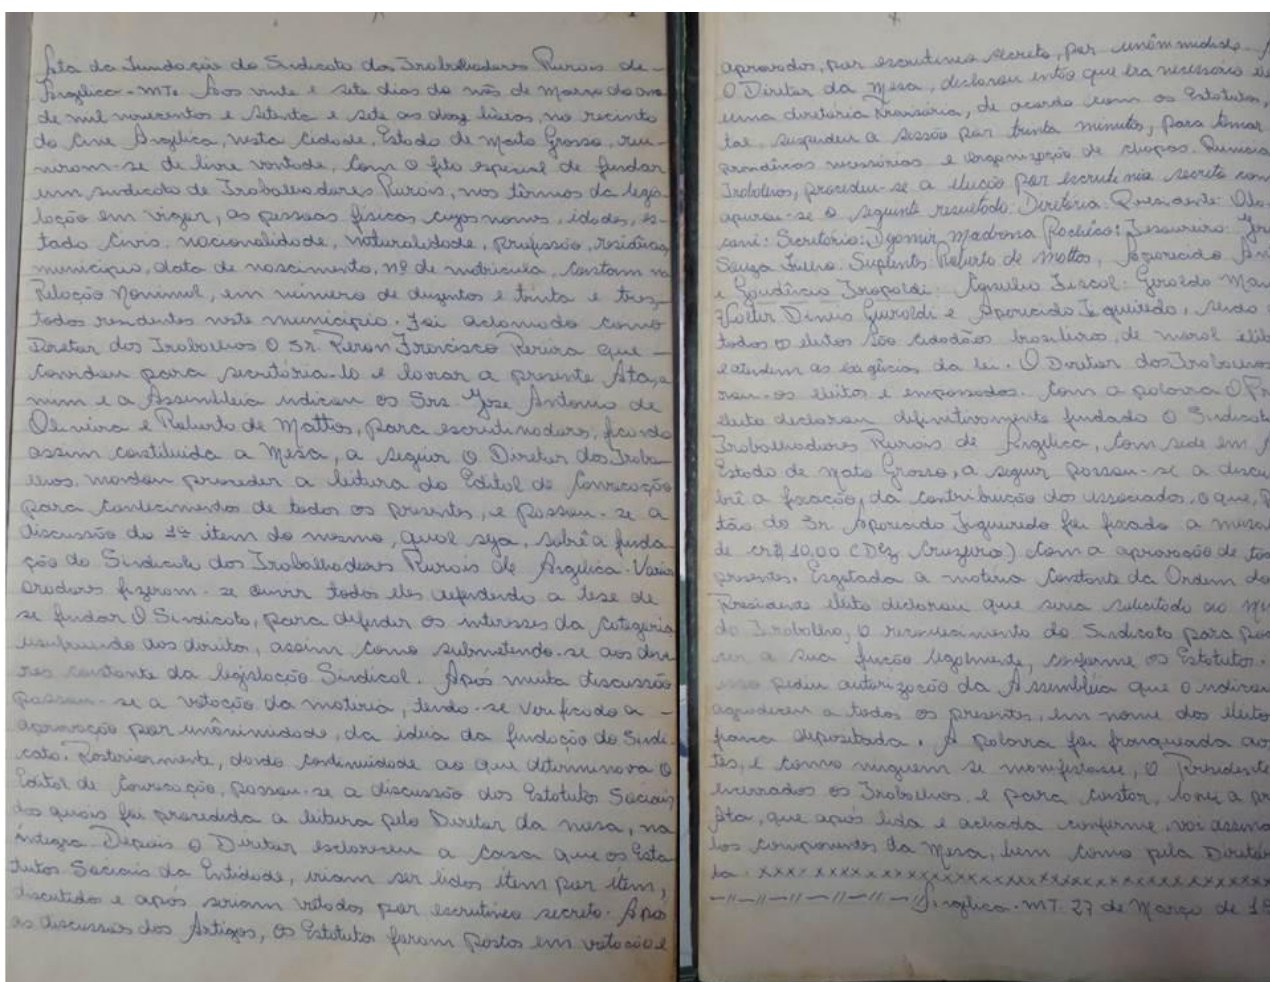 Ata da Fundação do Sindicato dos Trabalhadores Rurais de -
Angélica - MT. Aos vinte e sete dias do mês de Março do ano
de mil novecentos e setenta e sete as doze horas, no recinto
do Cine Angélica, nesta Cidade, Estado de Mato Grosso, reu-
niram-se de livre vontade, com o fito especial de fundar
um sindicato de Trabalhadores Rurais, nos têrmos da legis-
lação em vigor, as pessoas físicas cujos nomes, idades, es-
tado civis, nacionalidade, naturalidade, profissão, residência,
município, data de nascimento, nº de matricula, constam na
Relação Nominal, em número de duzentos e trinta e tres,
todos residentes neste município. Foi aclamado como
Diretor dos Trabalhos O Sr. Peron Francisco Pereira que -
convidou para secretária-lo e lavrar a presente Ata, a
mim e a Assembléia indicou os Srs. Jose Antonio de
Oliveira e Roberto de Mattos, para escrutinadores, ficando
assim constituida a Mesa, a seguir O Diretor dos Traba-
lhos, mandou proceder a leitura do Edital de Convocação
para conhecimentos de todos os presentes, e passou-se a
discussão do 1º item do mesmo, qual seja, sobre a funda-
ção do Sindicato dos Trabalhadores Rurais de Angélica. Varios
oradores fizeram-se ouvir todos eles defendendo a tese de
se fundar O Sindicato, para defender os interesses da Categoria
usufruindo dos direitos, assim como submetendo-se aos deve
res constante da legislação Sindical. Após muita discussão
passou-se a votação da materia, tendo-se verificado a -
aprovação por unânimidade, da ideia da fundação do Sindi-
cato. Posteriormente, dando continuidade ao que determinava O
Edital de Convocação, passou-se a discussão dos Estatutos Sociais
dos quais foi procedida a leitura pelo Diretor da mesa, na
íntegra Depois O Diretor esclareceu a casa que os Esta-
tutos Sociais da Entidade, iriam ser lidos item por item,
discutido e após seriam votados por escrutineo secreto. Após
as discussões dos Artigos, os Estatutos foram postos em votação e
aprovados, por escrutineo secreto, por unânimidade.
O Diretor da Mesa, declarou então que era necessário
uma diretoria transitória, de acordo com os Estatutos,
tal, suspendeu a sessão por trinta minutos, para tomar
necessárias e organização de chapas.
Trabalhos, procedeu-se a eleição por escrutineo secreto com
apurou-se o seguinte resultado: Diretoria: Presidente:
Secretário: Madrona Pachêco: Tesoureiro:
Souza Filho. Suplentes: Roberto de Mattos, Aparecido
e Conselho Fiscal: Geraldo
e Aparecido sendo
todos os eleitos são cidadãos brasileiros, de moral
e atendem as exigências da lei. O Diretor dos Trabalhos
eleitos e empossados. Com a palavra O
eleito declarou definitivamente fundado O Sindicato
Trabalhadores Rurais de Angélica, com sede em
Estado de Mato Grosso, a seguir passou-se a
a fixação, da contribuição dos associados, o que,
tão do Sr. Aparecido foi fixado a
de cr$ 10,00 (Dez Cruzeiro) com a aprovação de
presentes. Esgotada a materia constante da Ordem do
Presidente eleito declarou que seria solicitado ao
do Trabalho, o reconhecimento do Sindicato para
cer a sua função legalmente, conforme os Estatutos.
isso pediu autorização da Assembléia que o
agradeceu a todos os presentes, em nome dos eleitos
depositada. A palavra foi franqueada aos
tes, e como ninguem se manifestasse, O Presidente
encerrados os Trabalhos, e para constar, lavrei a
Ata, que após lida e achada conforme, vai
los componentes da Mesa, bem como pela
Angélica - MT. 27 de Março de 19